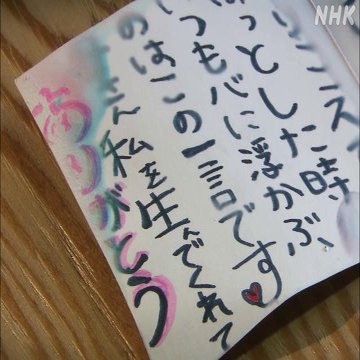 NHK
っとした時
つも心に浮かぶ、
のはこの一言です
さん私を生んでくれて
ありがとう